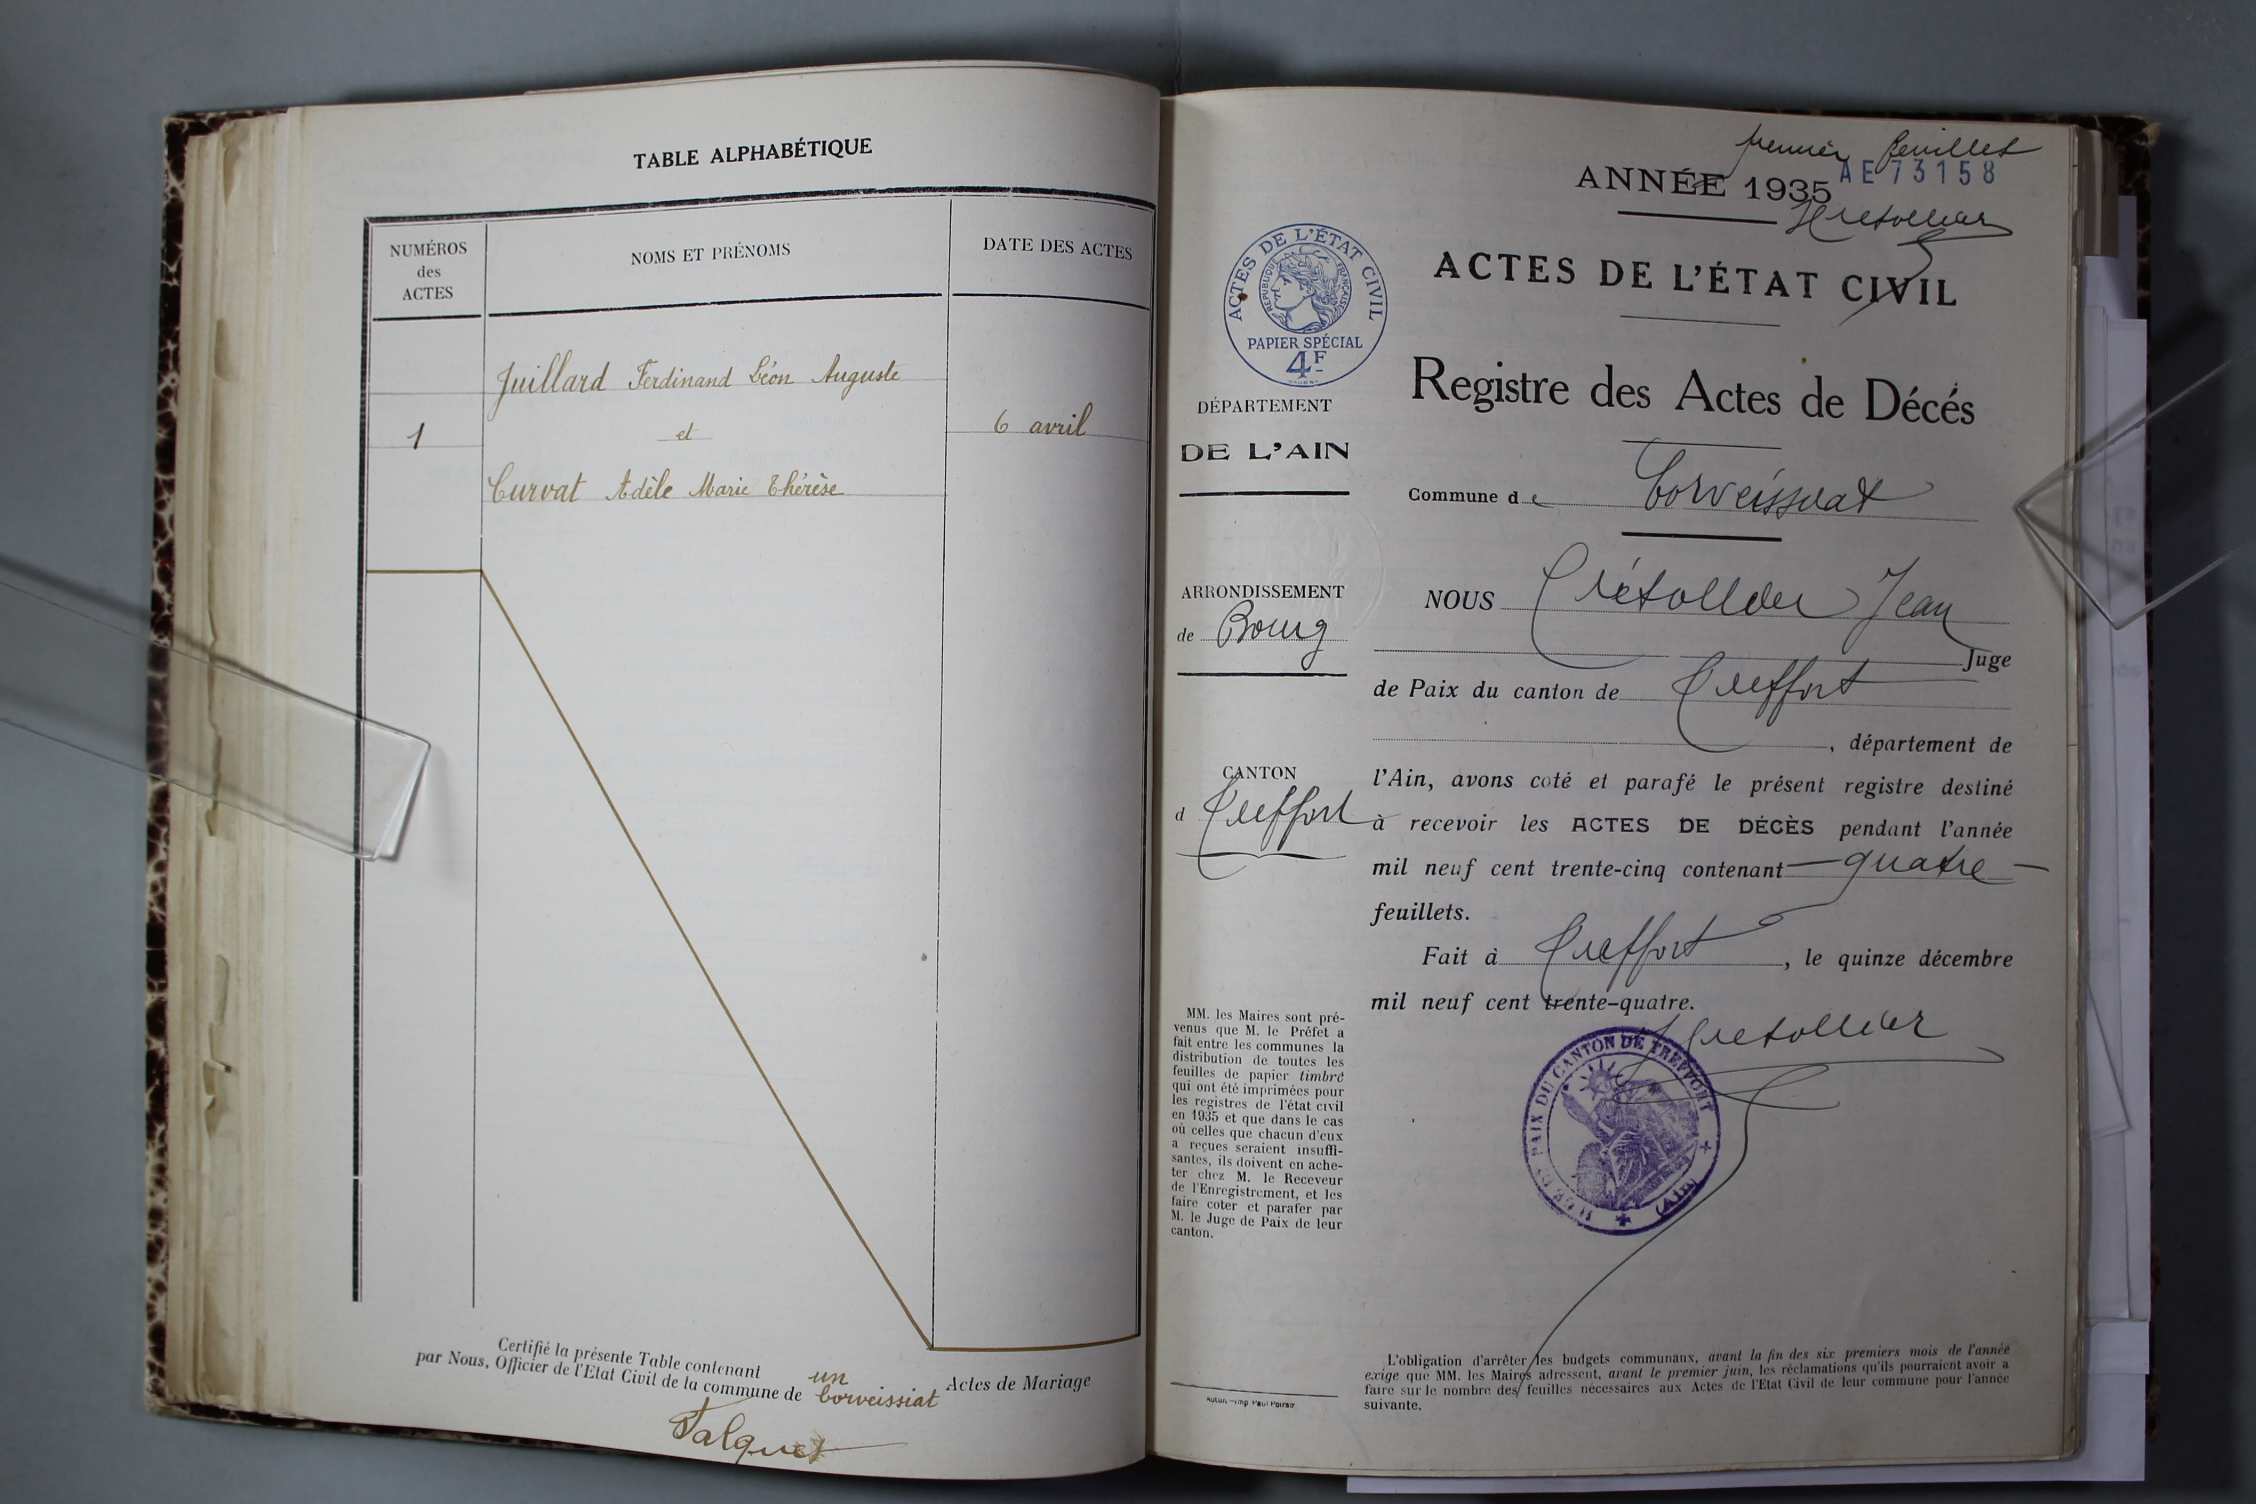 TABLE ALPHABÉTIQUE
NUMÉROS
des
ACTES
NOMS ET PRÉNOMS
DATE DES ACTES
Juillard Ferdinand Léon Auguste
1
et
6 avril
Curvat Adèle Marie Thérèse
Certifié la présente Table contenant un Actes de Mariage
par Nous, Officier de l'Etat Civil de la commune de Corveissiat
premier feuillet
ANNÉE 1935
AE 73158
ACTES DE L'ÉTAT CIVIL
RÉPUBLIQUE FRANÇAISE
PAPIER SPÉCIAL
4F
ACTES DE L'ÉTAT CIVIL
Registre des Actes de Décés
DÉPARTEMENT
DE L'AIN
Commune de Corveissiat
ARRONDISSEMENT
de Bourg
CANTON
d Treffort
NOUS Crétollier Jean
Juge
de Paix du canton de Treffort
, département de
l'Ain, avons coté et parafé le présent registre destiné
à recevoir les ACTES DE DÉCÈS pendant l'année
mil neuf cent trente-cinq contenant quatre
feuillets.
Fait à Treffort, le quinze décembre
mil neuf cent trente-quatre.
JUGE DE PAIX DU CANTON DE TREFFORT
(AIN)
MM. les Maires sont pré-
venus que M. le Préfet a
fait entre les communes la
distribution de toutes les
feuilles de papier timbré
qui ont été imprimées pour
les registres de l'état civil
en 1935 et que dans le cas
où celles que chacun d'eux
a reçues seraient insuffi-
santes, ils doivent en ache-
ter chez M. le Receveur
de l'Enregistrement, et les
faire coter et parafer par
M. le Juge de Paix de leur
canton.
L'obligation d'arrêter les budgets communaux, avant la fin des six premiers mois de l'année
exige que MM. les Maires adressent, avant le premier juin, les réclamations qu'ils pourraient avoir a
faire sur le nombre des feuilles nécessaires aux Actes de l'Etat Civil de leur commune pour l'année
suivante.